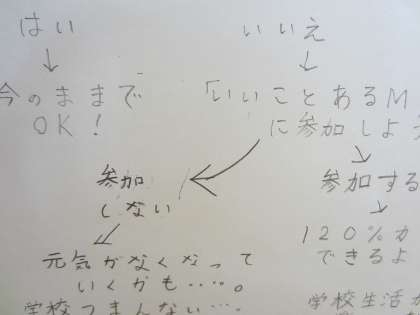 はい
いいえ
今のままで
OK!
「いいことあるM
に参加しよう
参加
しない
参加する
元気がなくなって
いくかも・・・・。
学校つまんない・・・
120%力
できるよ
学校生活が